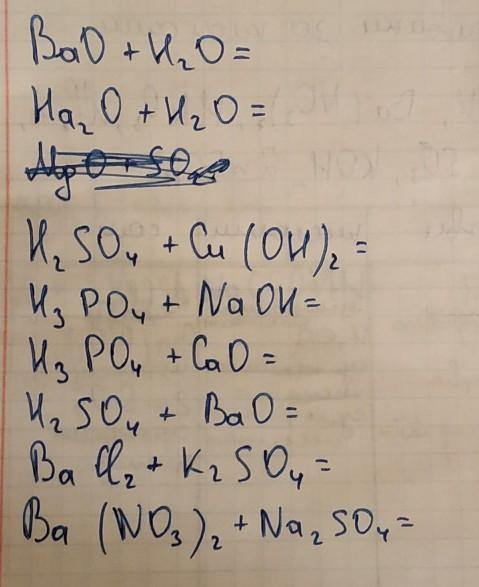 BaO + H₂O =
Na₂O + H₂O =
MgO + SO
H₂SO₄ + Cu(OH)₂ =
H₃PO₄ + NaOH =
H₃PO₄ + CaO =
H₂SO₄ + BaO =
BaCl₂ + K₂SO₄ =
Ba(NO₃)₂ + Na₂SO₄ =